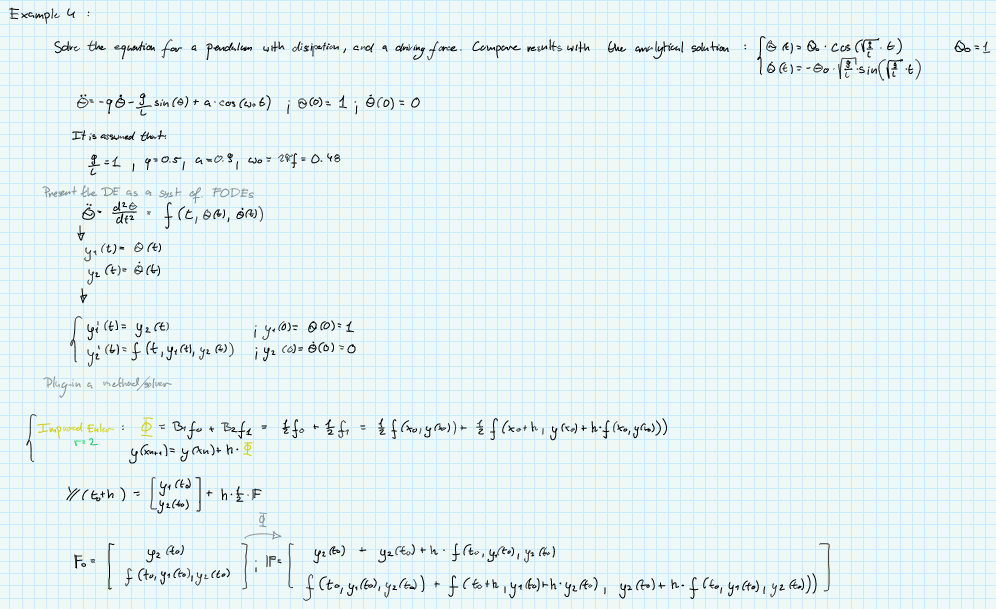 Example 4 :
Solve the equation for a pendulum with disipation, and a driving force. Compare results with the analytical solution : { θ(t) = θ₀ · cos(√(g/l) · t) θ₀ = 1
θ̇(t) = -θ₀ · √(g/l) · sin(√(g/l) · t)
θ̈ = -qθ̇ - g/l sin(θ) + a · cos(ω₀t) ; θ(0) = 1 ; θ̇(0) = 0
It is assumed that:
g/l = 1 , q = 0.5, a = 0.9, ω₀ = 2πf = 0.48
Present the DE as a syst. of FODEs
θ̈ = d²θ/dt² = f(t, θ(t), θ̇(t))
↓
y₁(t) = θ(t)
y₂(t) = θ̇(t)
↓
{ y₁'(t) = y₂(t) ; y₁(0) = θ(0) = 1
y₂'(t) = f(t, y₁(t), y₂(t)) ; y₂(0) = θ̇(0) = 0
Plug-in a method/solver
{ Improved Euler : Φ = B₁f₀ + B₂f₁ = ½f₀ + ½f₁ = ½f(x₀, y(x₀)) + ½f(x₀+h, y(x₀) + h·f(x₀, y(x₀)))
r=2
y(xₙ₊₁) = y(xₙ) + h · Φ
Y(t₀+h) = [y₁(t₀) y₂(t₀)] + h · ½ · F
Φ
F₀ = [ y₂(t₀) ; F = [ y₂(t₀) + y₂(t₀) + h · f(t₀, y₁(t₀), y₂(t₀)) ]
f(t₀, y₁(t₀), y₂(t₀)) ] f(t₀, y₁(t₀), y₂(t₀)) + f(t₀+h, y₁(t₀)+h·y₂(t₀), y₂(t₀) + h · f(t₀, y₁(t₀), y₂(t₀)))